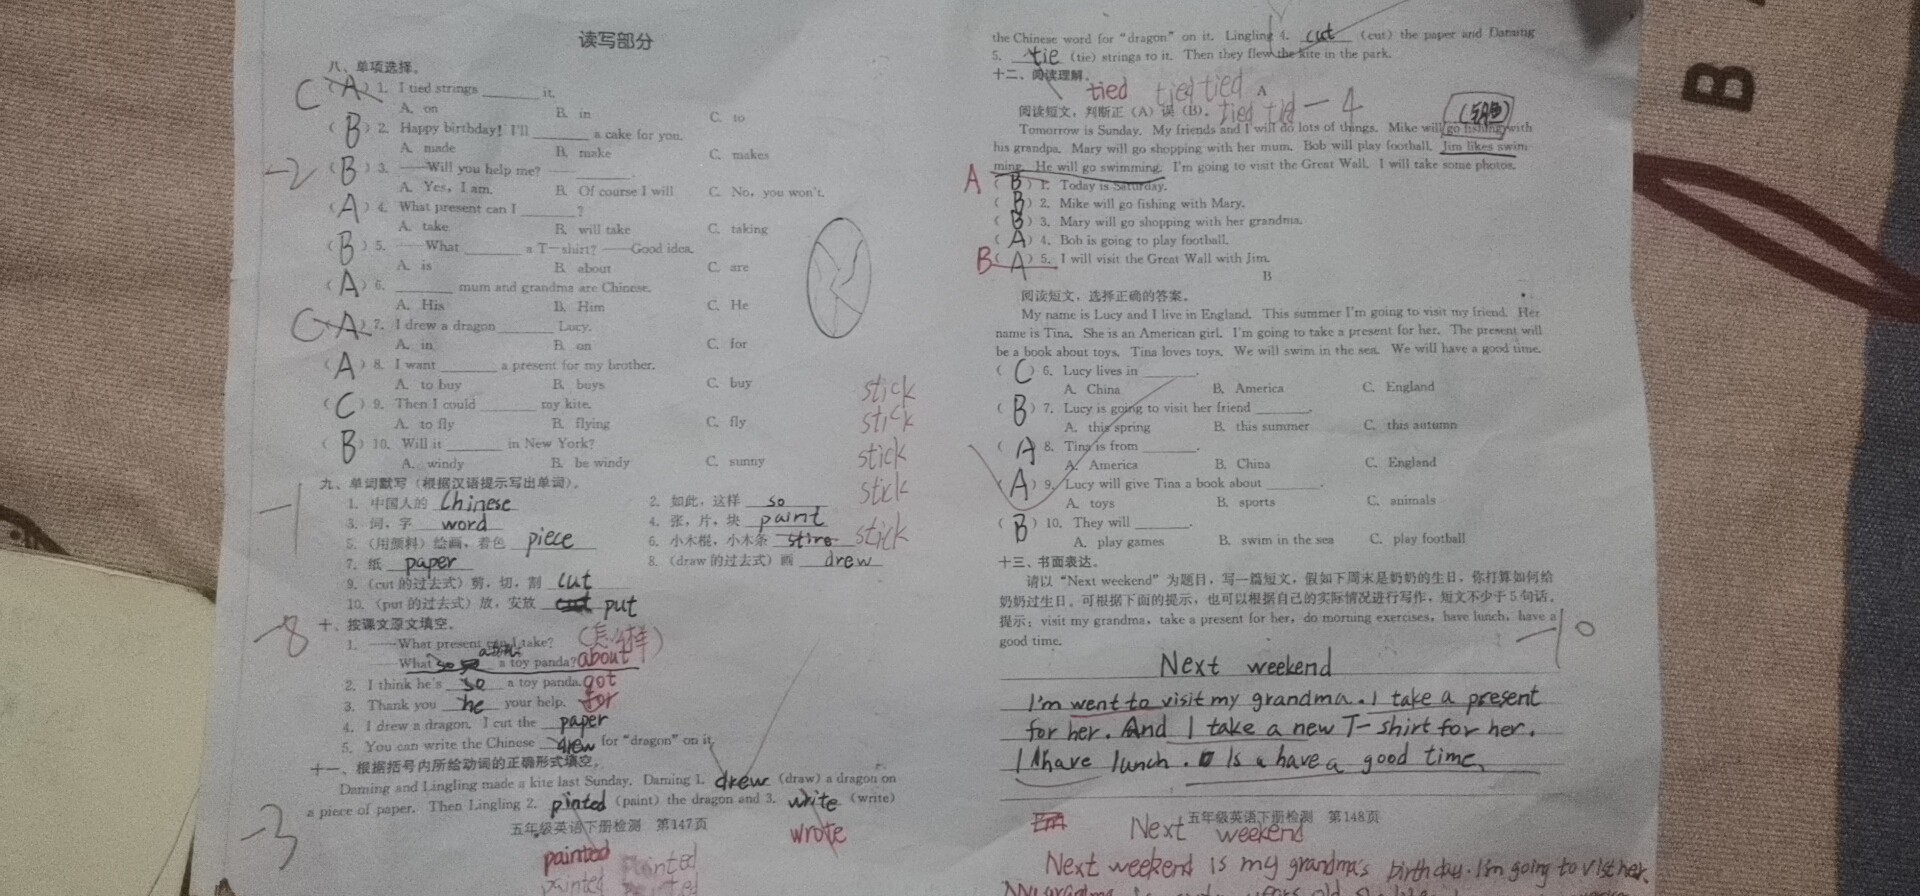 读写部分
八、单项选择。
C (A) 1. I tied strings ______ it.
A. on B. in C. to
(B) 2. Happy birthday! I'll ______ a cake for you.
A. made B. make C. makes
-2 (B) 3. ——Will you help me? ——______.
A. Yes, I am. B. Of course I will C. No, you won't.
(A) 4. What present can I ______?
A. take B. will take C. taking
(B) 5. ——What ______ a T-shirt? ——Good idea.
A. is B. about C. are
(A) 6. ______ mum and grandma are Chinese.
A. His B. Him C. He
C (A) 7. I drew a dragon ______ Lucy.
A. in B. on C. for
(A) 8. I want ______ a present for my brother.
A. to buy B. buys C. buy
stick
(C) 9. Then I could ______ my kite.
stick
A. to fly B. flying C. fly
(B) 10. Will it ______ in New York?
stick
A. windy B. be windy C. sunny
九、单词默写(根据汉语提示写出单词)。
stick
-1
1. 中国人的 Chinese 2. 如此，这样 so
3. 词，字 word 4. 张，片，块 paint
5. (用颜料)绘画，着色 piece 6. 小木棍，小木条 stick
7. 纸 paper 8. (draw 的过去式)画 drew
9. (cut 的过去式)剪，切，割 cut
10. (put 的过去式)放，安放 put
-8
十、按课文原文填空。
1. ——What present can I take? (怎么样)
——What so a toy panda? about
2. I think he's so a toy panda. got
3. Thank you he your help. for
4. I drew a dragon. I cut the paper
5. You can write the Chinese drew for "dragon" on it.
十一、根据括号内所给动词的正确形式填空。
Daming and Lingling made a kite last Sunday. Daming 1. drew (draw) a dragon on
a piece of paper. Then Lingling 2. pinted (paint) the dragon and 3. write (write)
-3
五年级英语下册检测 第147页
wrote
painted painted
painted painted
the Chinese word for "dragon" on it. Lingling 4. cut (cut) the paper and Daming
5. tie (tie) strings to it. Then they flew the kite in the park.
十二、阅读理解。
tied tied tied
A
阅读短文，判断正(A)误(B)。
tied tied -4
(钓鱼)
Tomorrow is Sunday. My friends and I will do lots of things. Mike will go fishing with
his grandpa. Mary will go shopping with her mum. Bob will play football. Jim likes swim-
ming. He will go swimming. I'm going to visit the Great Wall. I will take some photos.
A (B) 1. Today is Saturday.
(B) 2. Mike will go fishing with Mary.
(B) 3. Mary will go shopping with her grandma.
(A) 4. Bob is going to play football.
B (A) 5. I will visit the Great Wall with Jim.
B
阅读短文，选择正确的答案。
My name is Lucy and I live in England. This summer I'm going to visit my friend. Her
name is Tina. She is an American girl. I'm going to take a present for her. The present will
be a book about toys. Tina loves toys. We will swim in the sea. We will have a good time.
(C) 6. Lucy lives in ______.
A. China B. America C. England
(B) 7. Lucy is going to visit her friend ______.
A. this spring B. this summer C. this autumn
(A) 8. Tina is from ______.
A. America B. China C. England
(A) 9. Lucy will give Tina a book about ______.
A. toys B. sports C. animals
(B) 10. They will ______.
A. play games B. swim in the sea C. play football
十三、书面表达。
请以“Next weekend”为题目，写一篇短文，假如下周末是奶奶的生日，你打算如何给
奶奶过生日。可根据下面的提示，也可以根据自己的实际情况进行写作，短文不少于5句话。
提示：visit my grandma, take a present for her, do morning exercises, have lunch, have a
good time.
-10
Next weekend
I'm went to visit my grandma. I take a present
for her. And I take a new T-shirt for her.
I have lunch. Is a have a good time.
五年级英语下册检测 第148页
Next weekend
Next weekend is my grandma's birthday. I'm going to vist her.
B